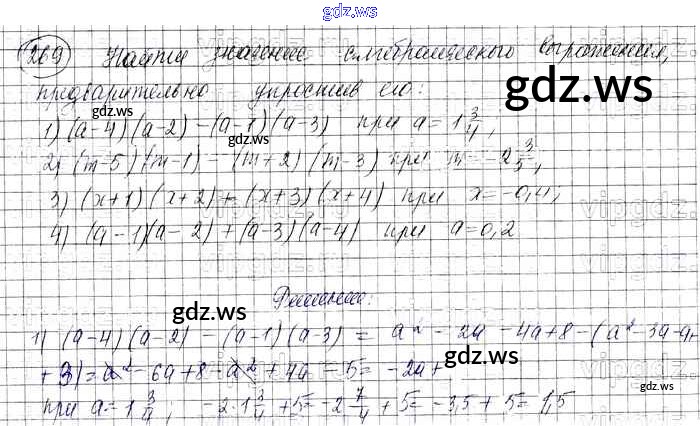 gdz.ws
269 Найти значение алгебраического выражения,
предварительно упростив его:
1) (a-4)(a-2)-(a-1)(a-3) при a=1 3/4,
2) (m-5)(m-1)-(m+2)(m-3) при m=-2 3/5,
3) (x+1)(x+2)+(x+3)(x+4) при x=-0,4;
4) (a-1)(a-2)+(a-3)(a-4) при a=0,2
Решение:
1) (a-4)(a-2)-(a-1)(a-3)=a²-2a-4a+8-(a²-3a-a+
+3)=a²-6a+8-a²+4a-5=-2a+
при a=1 3/4; -2·1 3/4+5=-2 7/4+5=-3,5+5=1,5
gdz.ws
gdz.ws
gdz.ws
gdz.ws
gdz.ws
gdz.ws
gdz.ws